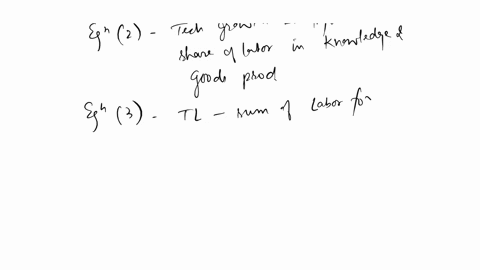 Eqⁿ (2) - Tech growth
share of labor in knowledge &
goods prod
Eqⁿ (3) - TL - sum of Labor fo